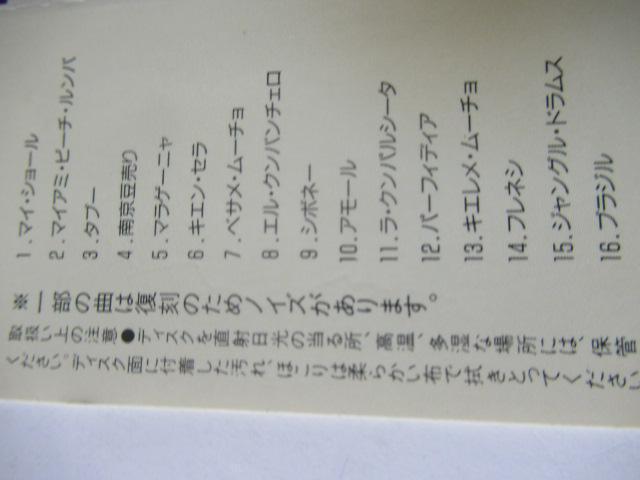 1. マイ・ショール
2. マイアミ・ビーチ・ルンバ
3. タブー
4. 南京豆売り
5. マラゲーニャ
6. キエン・セラ
7. ベサメ・ムーチョ
8. エル・クンバンチェロ
9. シボネー
10. アモール
11. ラ・クンパルシータ
12. パーフィディア
13. キエレメ・ムーチョ
14. フレネシ
15. ジャングル・ドラムス
16. ブラジル
※一部の曲は復刻のためノイズがあります。
取扱い上の注意●ディスクを直射日光の当る所、高温、多湿な場所には、保管
ください。ディスク面に付着した汚れ、ほこりは柔らかい布で拭きとってください